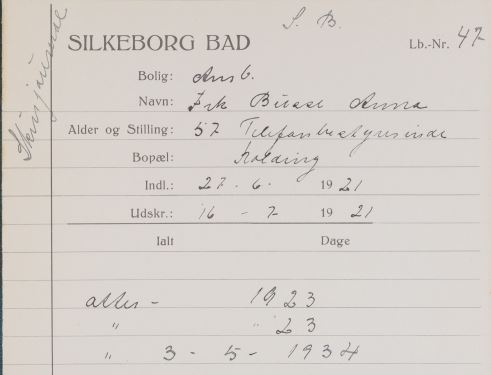 S. B.
SILKEBORG BAD
Lb.-Nr. 47
Bolig: Ans 6.
Navn: Frk Busse Anna
Alder og Stilling: 57 Telefonbestyrerinde
Bopæl: Kolding
Indl.: 27. 6. 1921
Udskr.: 16 - 7 1921
Ialt Dage
atter - 1923
" " 23
" 3 - 5 - 1934